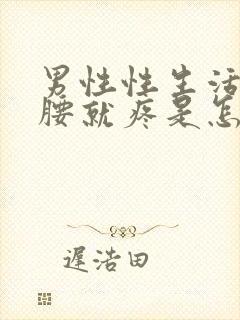 男性性生活
腰就疼是怎
遲浩田